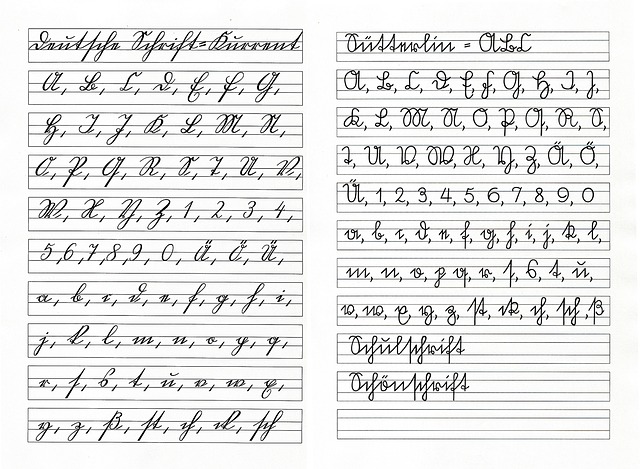 Deutsche Schrift=Kurrent
A, B, C, D, E, F, G,
H, I, J, K, L, M, N,
O, P, Q, R, S, T, U, V,
W, X, Y, Z, 1, 2, 3, 4,
5, 6, 7, 8, 9, 0, Ä, Ö, Ü,
a, b, c, d, e, f, g, h, i,
j, k, l, m, n, o, p, q,
r, ſ, s, t, u, v, w, x,
y, z, ß, ſt, ch, ck, ſch
Sütterlin = ABC
A, B, C, D, E, F, G, H, I, J,
K, L, M, N, O, P, Q, R, S,
T, U, V, W, X, Y, Z, Ä, Ö,
Ü, 1, 2, 3, 4, 5, 6, 7, 8, 9, 0
a, b, c, d, e, f, g, h, i, j, k, l,
m, n, o, p, q, r, ſ, s, t, u,
v, w, x, y, z, ſt, ck, ch, ſch, ß
Schulſchrift
Schönſchrift